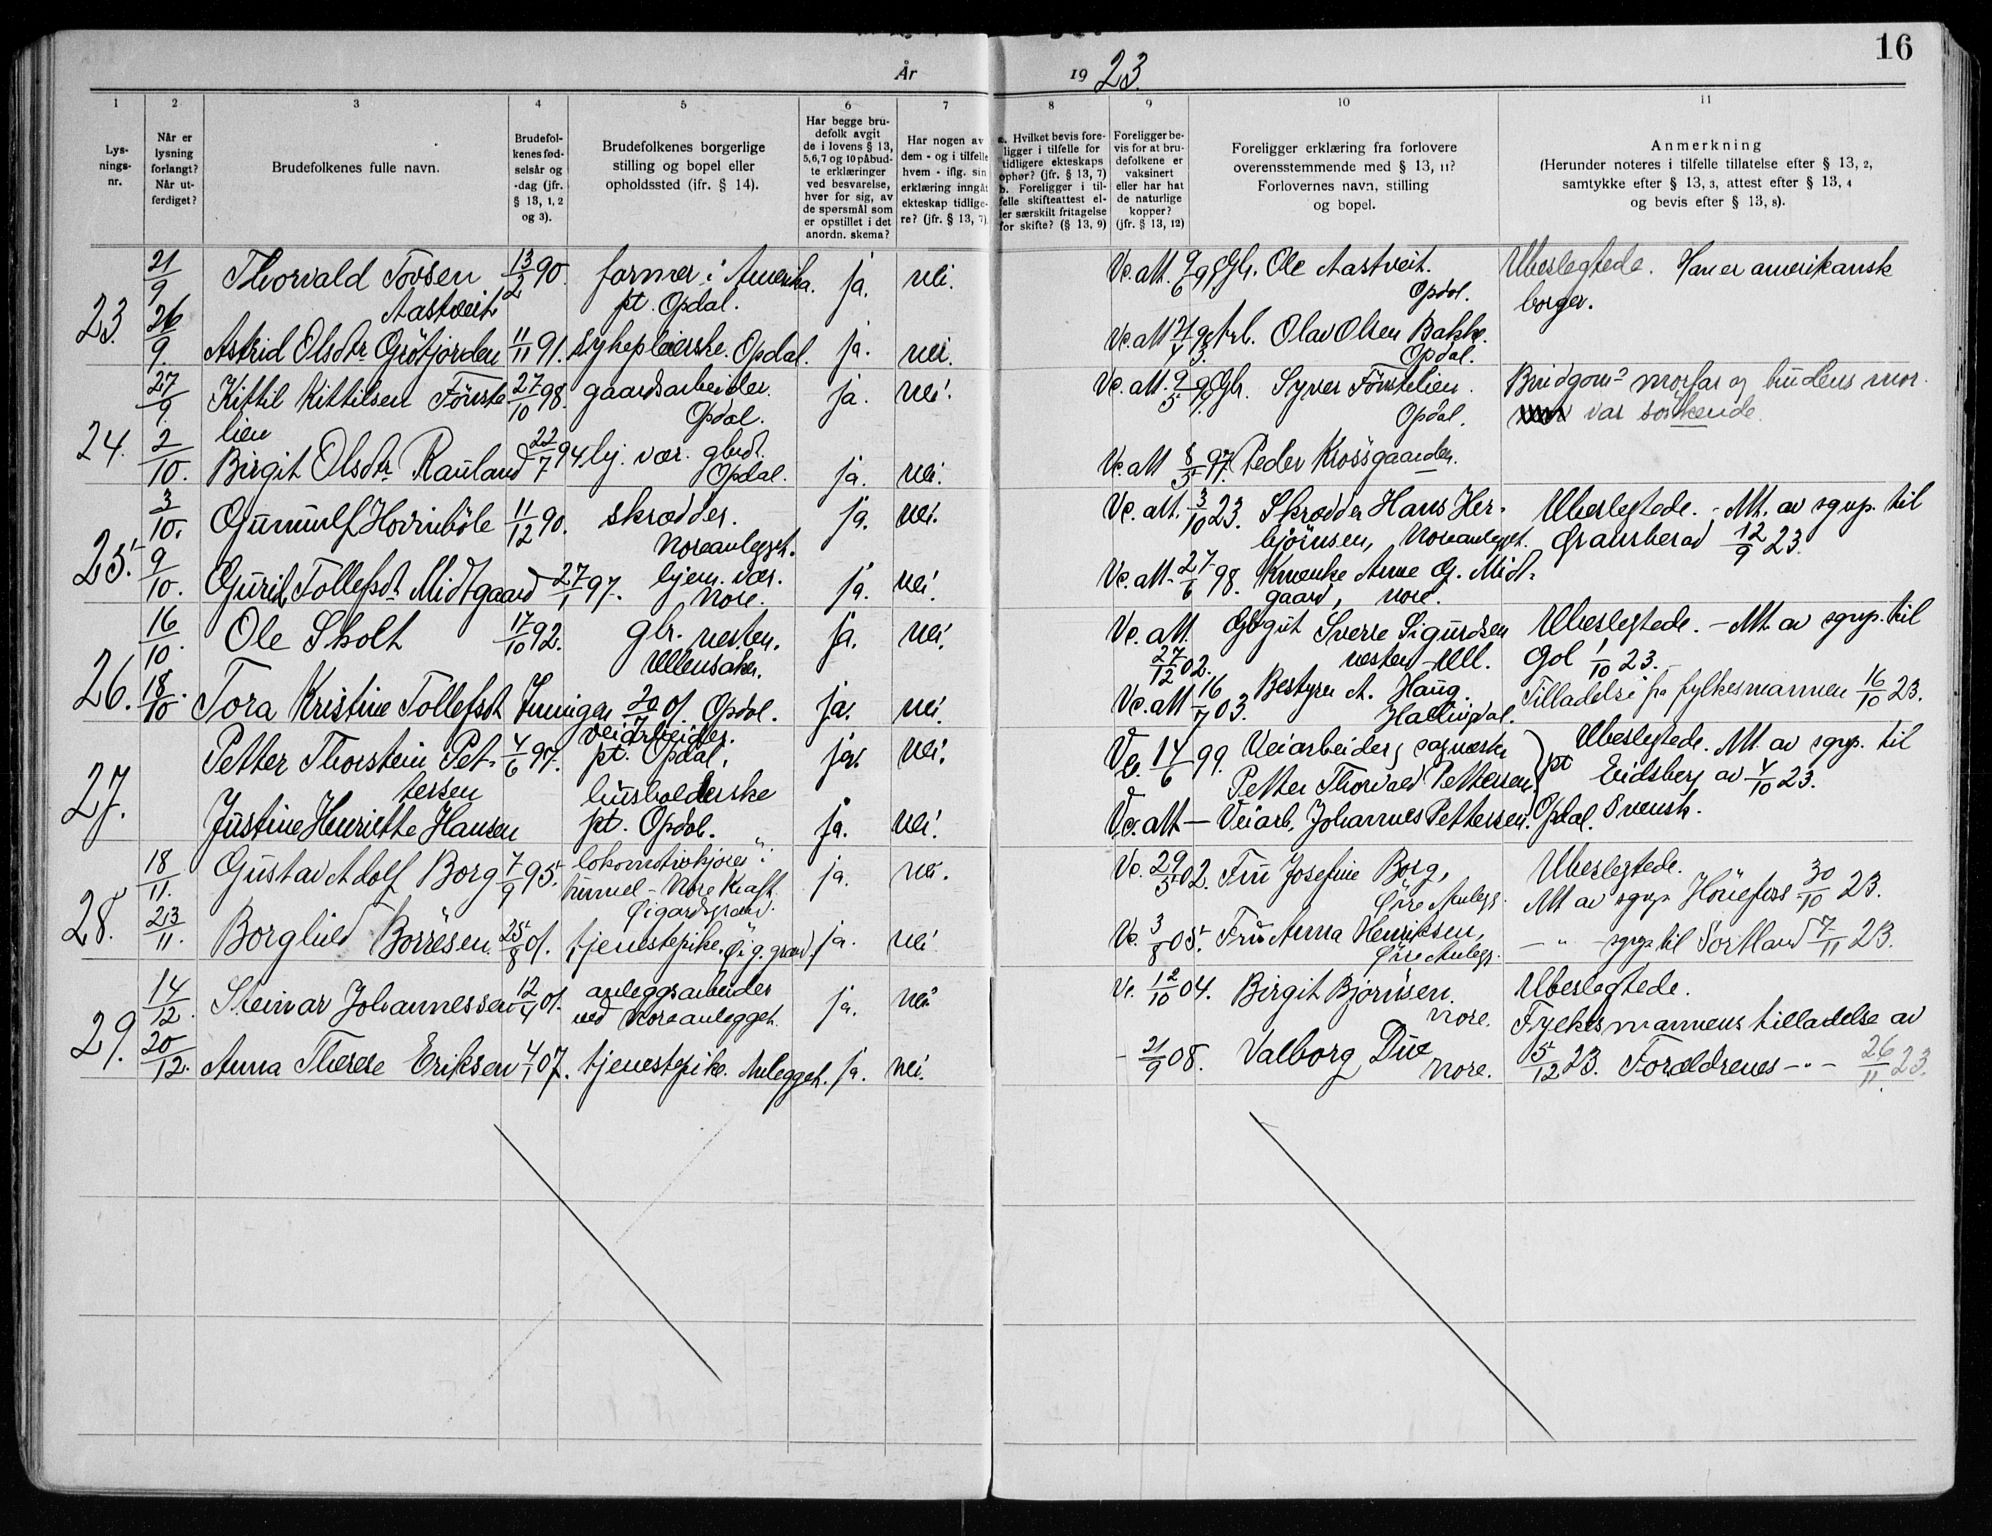 16
År 1923.
1 2 3 4 5 6 7 8 9 10 11
Lys-
nings-
nr.
Når er
lysning
forlangt?
Når ut-
ferdiget?
Brudefolkenes fulle navn.
Brudefol-
kenes fød-
selsår og
-dag (jfr.
§ 13, 1, 2
og 3).
Brudefolkenes borgerlige
stilling og bopel eller
opholdssted (ifr. § 14).
Har begge bru-
defolk avgit
de i lovens § 13,
5,6,7 og 10 påbud-
te erklæringer
ved besvarelse,
hver for sig, av
de spørsmål som
er opstillet i det
anordn. skema?
Har nogen av
dem - og i tilfelle
hvem - iflg. sin
erklæring inngåt
ekteskap tidlige-
re? (jfr. § 13, 7)
a. Hvilket bevis fore-
ligger i tilfelle for
tidligere ekteskaps
ophør? (jfr. § 13, 7)
b. Foreligger i til-
felle skifteattest el-
ler særskilt fritagelse
for skifte? (§ 13, 9)
Foreligger be-
vis for at bru-
defolkene er
vaksinert
eller har hat
de naturlige
kopper?
(jfr. § 13, 12)
Foreligger erklæring fra forlovere
overensstemmende med § 13, 11?
Forlovernes navn, stilling
og bopel.
Anmerkning
(Herunder noteres i tilfelle tillatelse efter § 13, 2,
samtykke efter § 13, 3, attest efter § 13, 4
og bevis efter § 13, 8).
23. 21/9 Thorvald Tovsen 13/2 90. farmer i Amerika. ja. nei. Vc. att. 9/6 Gbr. Ole Aastveit. Ubeslegtede. Han er amerikansk
Aastveit pt. Opdal. Opdal. borger.
26/9. Astrid Olsdtr Grøtjorden 11/11 91. sykepleierske. Opdal. ja. nei. Vc. att Arb. Olav Olsen Bakke.
Opdal.
24. 27/9. Kittil Kittilsen Fønste 27/10 98. gaardsarbeider. ja. nei. Vc. att. 9/5 Gbr. Syver Fønstelien. Brudgoms morfar og brudens mor-
lien Opdal. Opdal. var søskende.
2/10. Birgit Olsdtr Rauland 22/7 94 hj. vær. gbdt. ja. nei. Vc. att 8/5 97. Peder Krossgaarden.
Opdal.
25. 3/10. Gunnulf Hovinbøle 11/12 90. skrædder. ja. nei. Vc. att. 3/10 23. Skrædder Hans Her- Ubeslegtede. - Att. av sgnp. til
Noreanlegget. bjørnsen, Noreanlegget. Gransherad 12/9 23.
9/10. Guril Tollefsdt. Midtgaard 27/1 97. hjem. vær. ja. nei. Vc. att - 27/6 98. Anne G. Midt-
Nore. gaard, Nore.
26. 16/10. Ole Skolt 17/10 92. gbr. nesten. ja. nei. Vc. att. Sverre Sigurdsen Ubeslegtede. - Att. av sgnp. til
Ullensaker. 27/12 02. nesten - Ull. Gol 1/10 23.
18/10. Tora Kristine Tollefsdt 20/7 01. Opdal. ja. nei. Vc. att 16/7 03. Bestyrer A. Haug. Tilladelse fra fylkesmannen 16/10 23.
Hallingdal.
27. Petter Thorstein Pet- 4/6 97. veiarbeider. ja. nei. Vc. 14/6 99. Veiarbeider, Ubeslegtede. Att. av sgnp. til
tersen pt. Opdal. Petter Thorvald Pettersen pt Eidsberg av 4/10 23.
Justine Henriette Hansen husholderske ja. nei. Vc. att - Veiarb. Johannes Pettersen. Opdal. Svensk.
pt. Opdal.
28. 18/11. Gustav Adolf Borg 7/9 95. lokomotivkjører i ja. nei. Vc. 29/5 02. Fru Josefine Borg, Ubeslegtede.
tunnel - Nore Kraft. Øvre Anlegg. Att av sgnp Hønefoss 30/10 23.
Øigardsgrænd.
23/11. Borghild Børresen. 25/8 01. tjenestepike. Øig. grænd. ja. nei. Vc. 3/8 05. Fru Anna Henriksen, - " - sgnp til Sortland 7/11 23.
Øvre Anlegg.
29. 14/12. Steinar Johannessen 12/4 01. anleggsarbeider ja. nei Vc. 12/10 04. Birgit Bjørnsen. Ubeslegtede.
ved Noreanlegget. Nore. Fylkesmannens tilladelse av
20/12. Anna Therese Eriksen 4/1 07. tjenestepike. Anlegget. ja. nei. - 21/9 08. Valborg Due 5/12 23. Foreldrenes - " - 26/11 23.
Nore.